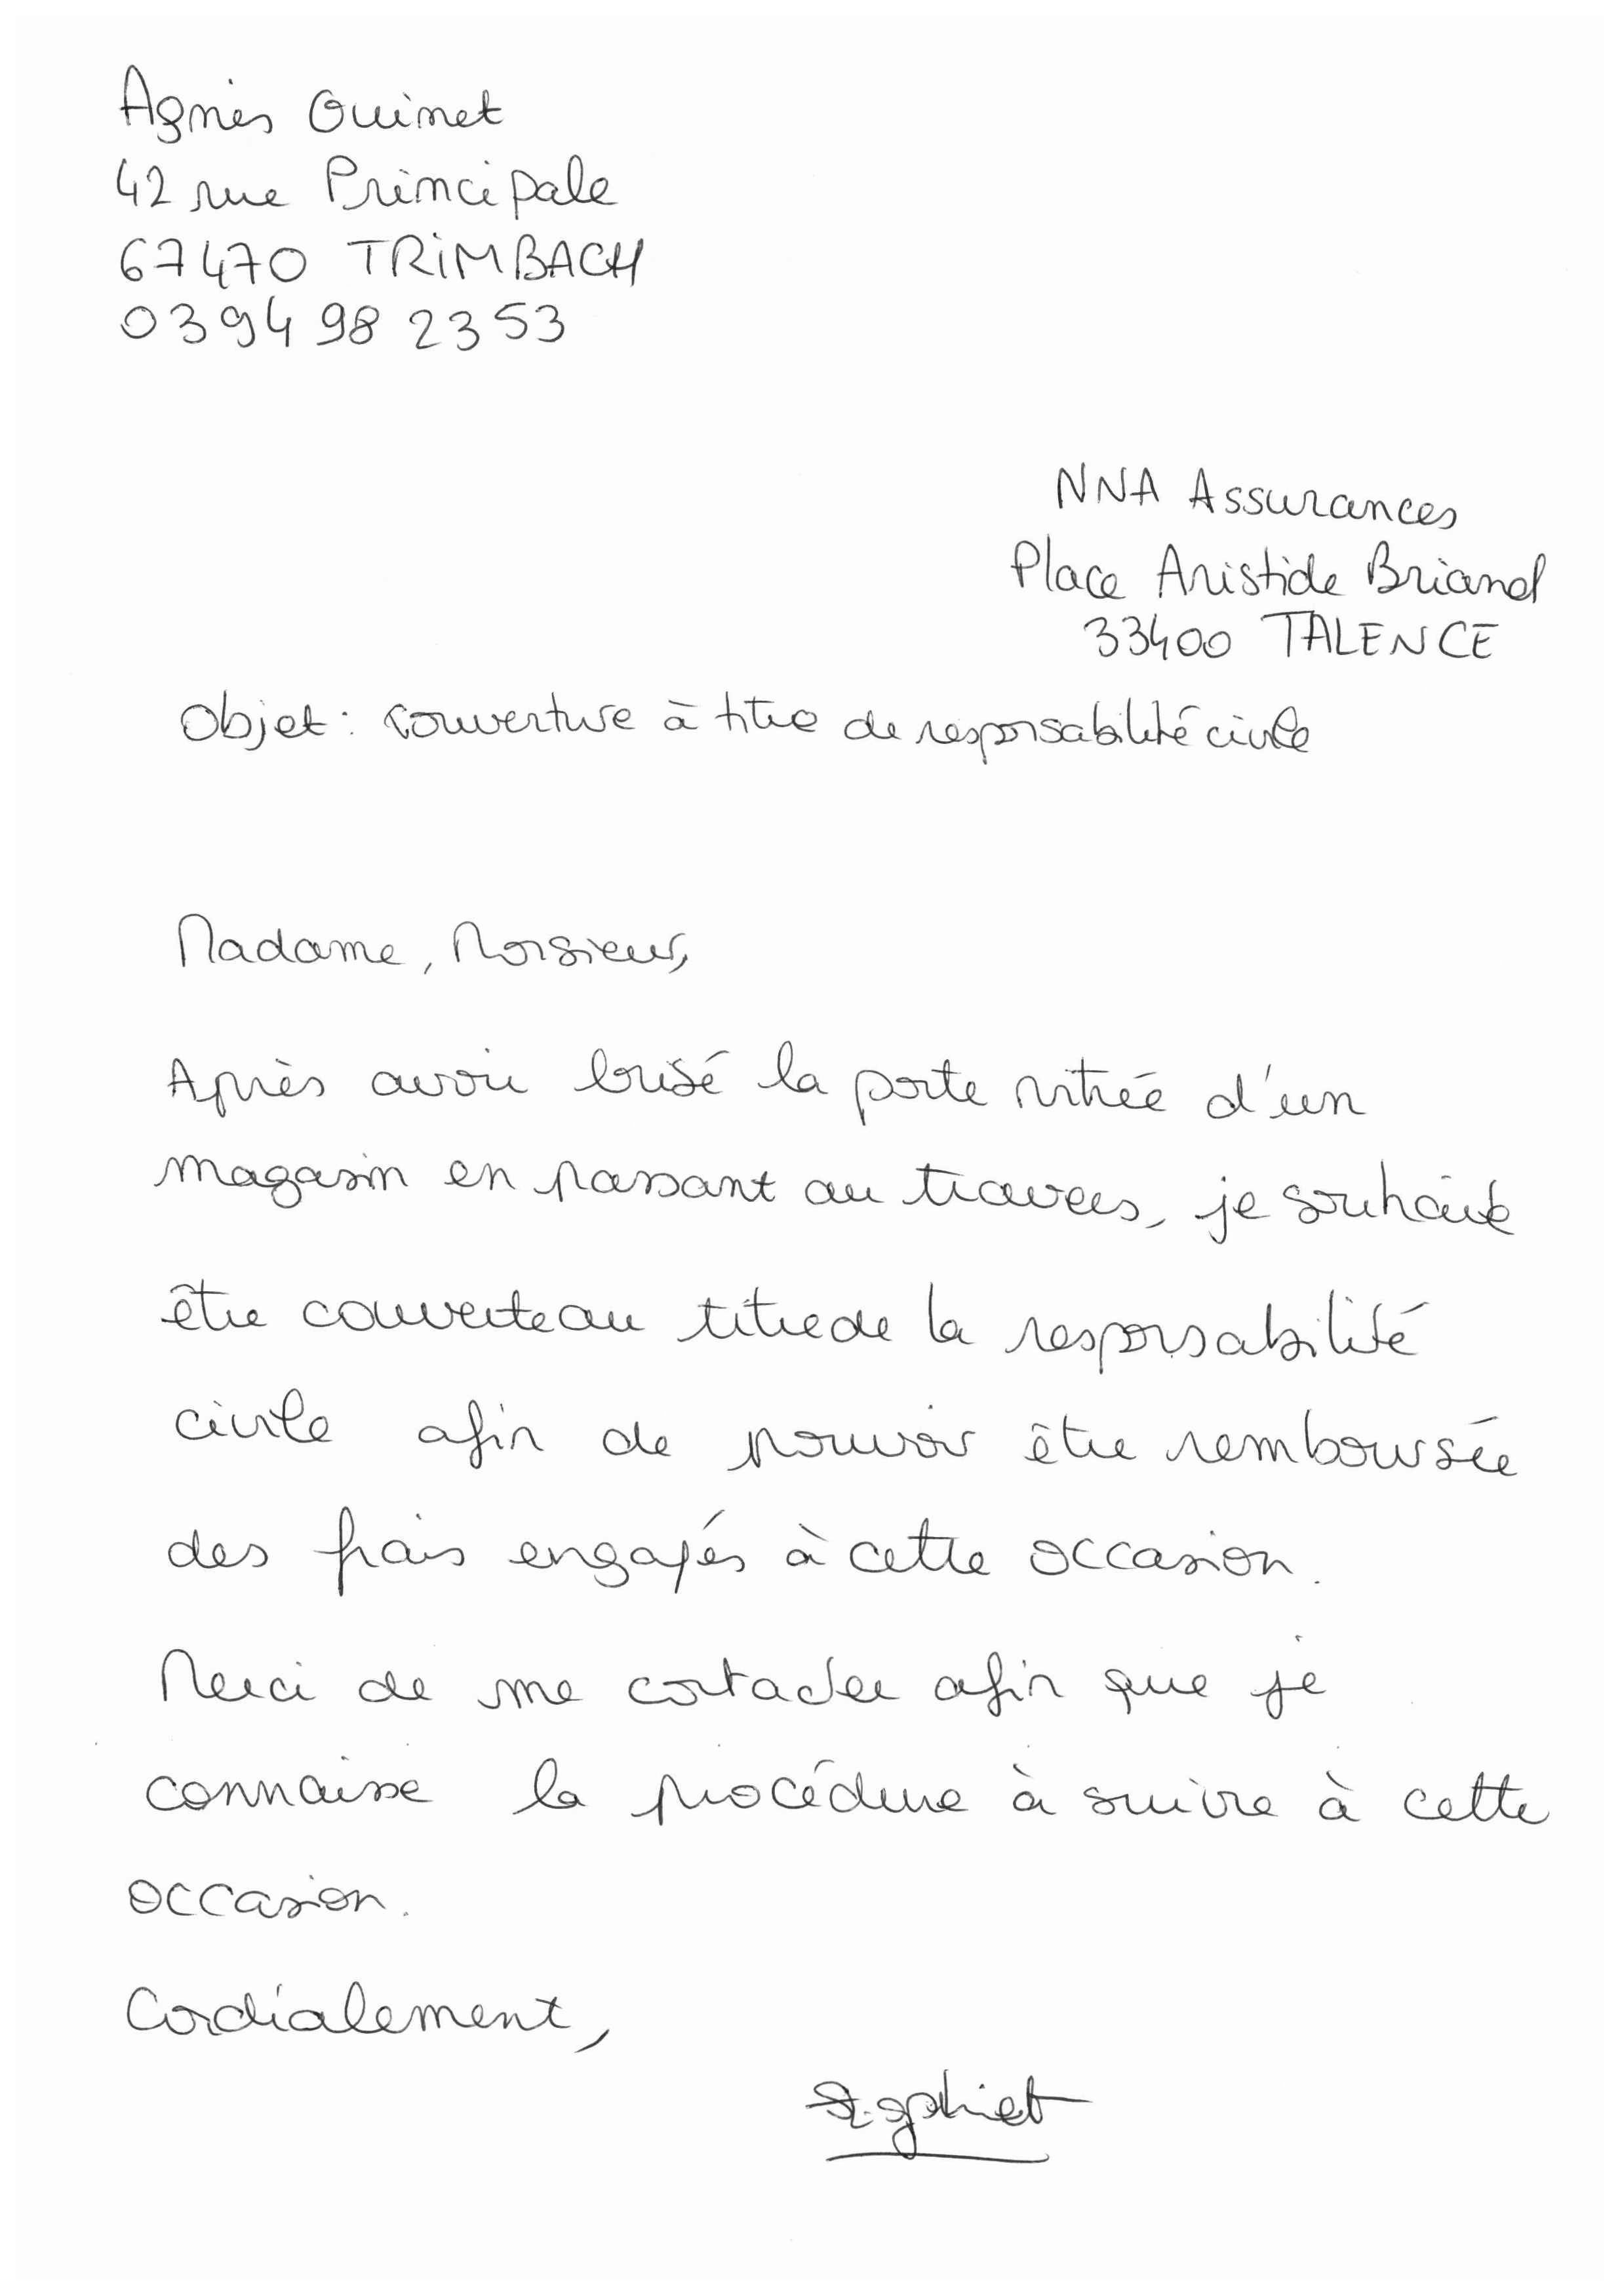 Agnès Ouimet
42 rue Principale
67470 TRIMBACH
03 94 98 23 53
NNA Assurances
Place Aristide Briand
33400 TALENCE
Objet : couverture à titre de responsabilité civile
Madame, Monsieur,
Après avoir brisé la porte vitrée d'un
magasin en passant au travers, je souhaite
être couverte au titre de la responsabilité
civile afin de pouvoir être remboursée
des frais engagés à cette occasion.
Merci de me contacter afin que je
connaisse la procédure à suivre à cette
occasion.
Cordialement,